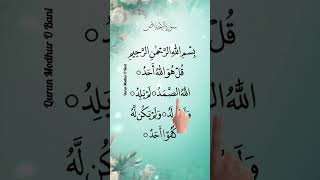 سورة الإخلاص
بِسْمِ اللّٰهِ الرَّحْمٰنِ الرَّحِيْمِ
قُلْ هُوَ اللّٰهُ اَحَدٌ
اَللّٰهُ الصَّمَدُ لَمْ يَلِدْ
لَدْ وَلَمْ يَكُنْ لَّهٗ
كُفُوًا اَحَدٌ
Quran Modhur O Bani
Quran Modhur O Bani